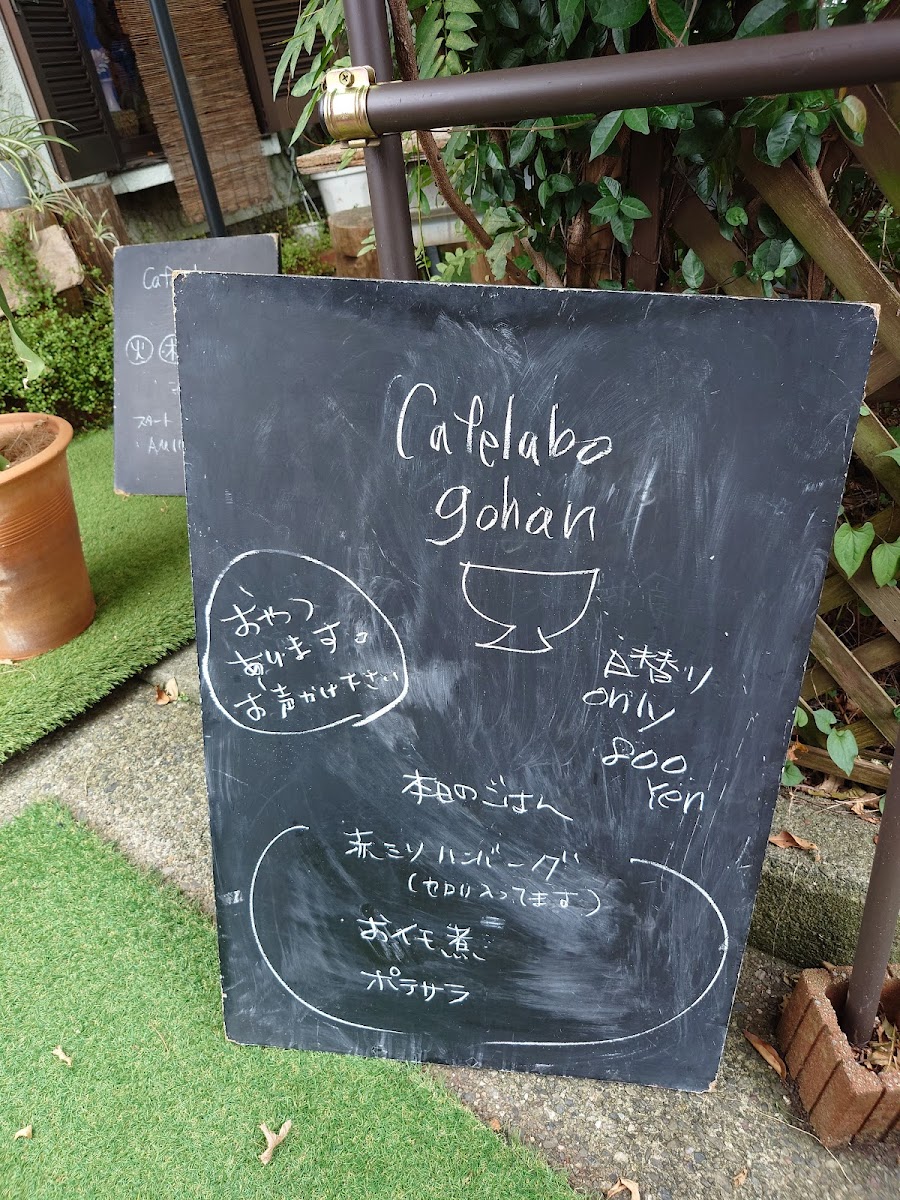 Cafe
火 木
スタート
AM11
Cafelabo
gohan
おやつ
あります。
お声かけ下さい
日替り
only
800
Yen
本日のごはん
赤ミソハンバーグ
(セロリ入ってます)
おイモ煮
ポテサラ